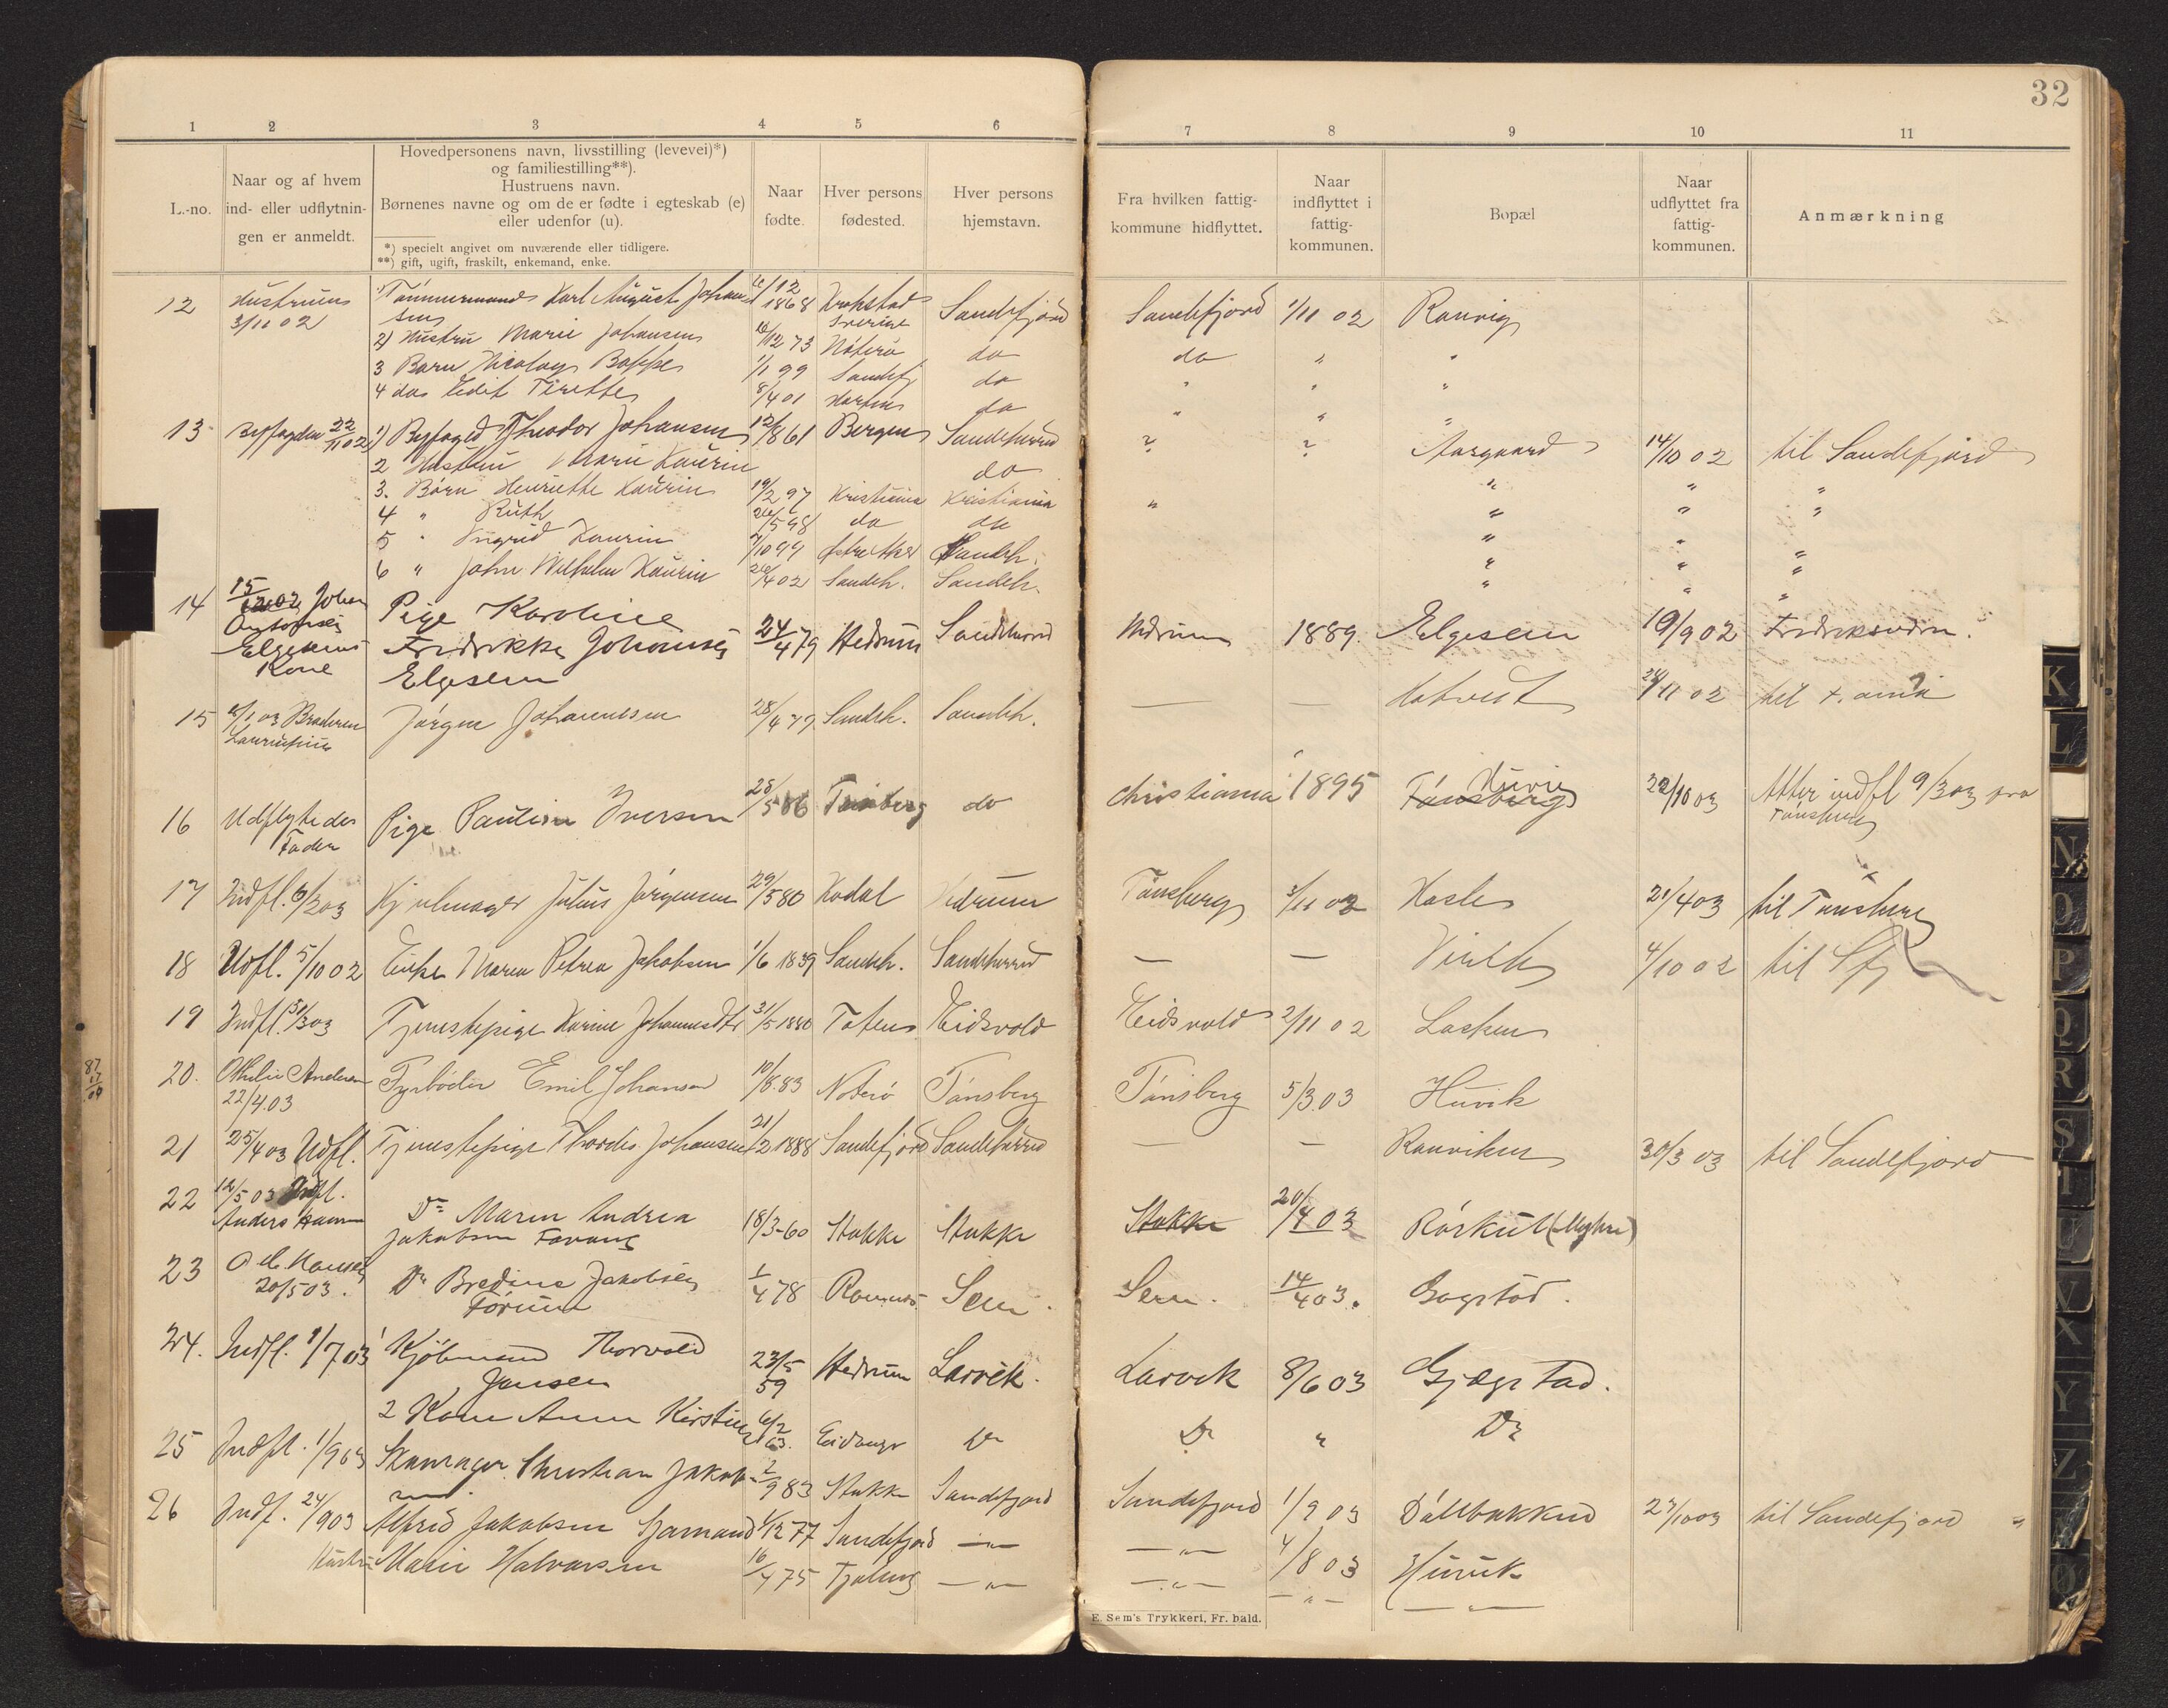 32
1 2 3 4 5 6 7 8 9 10 11
L.-no.
Naar og af hvem
ind- eller udflytnin-
gen er anmeldt.
Hovedpersonens navn, livsstilling (levevei)*)
og familiestilling**).
Hustruens navn.
Børnenes navne og om de er fødte i egteskab (e)
eller udenfor (u).
*) specielt angivet om nuværende eller tidligere.
**) gift, ugift, fraskilt, enkemand, enke.
Naar
fødte.
Hver persons
fødested.
Hver persons
hjemstavn.
Fra hvilken fattig-
kommune hidflyttet.
Naar
indflyttet i
fattig-
kommunen.
Bopæl
Naar
udflyttet fra
fattig-
kommunen.
Anmærkning
12 Hustruen 1) Tømmermand Karl August Johan 1868 Sandefjord Sandefjord 1/11 02 Ranvig
3/11 02 sen Sverige
2) Hustru Marie Johansen 12 73 Nøterø do do " "
3 Barn Nicolay 1/1 99 Sandefj do " " "
4 do Edit 8/4 01 do " " "
13 22/11 02 1) Byfoged Theodor Johansen 12/1861 Bergen Sandeherred ? ? Aasgaard 14/10 02 til Sandefjord
2 Hustru Marie Kaurin do " " "
3. Børn Henriette Kaurin 19/2 97 Kristiania Kristiania " " " "
4 " Ruth 26/5 98 do do " "
5 " Ingrid Kaurin /10 99 Sandeh. " " "
6 " John Wilhelm Kaurin 26/4 02 Sandeh. Sandeh. " " "
14 15/12 02 Johan Pige Karoline
Fredrikke Johansen 24/4 79 Hedrum Sandeherred 1889. Elgesem 19/9 02
Elgesems
Kone Elgesem
15 03 Broderen Jørgen Johannesen 28/4 79 Sandeh. Sandeh. — — 11 02 til
16 Udflyttedes Pige Iversen 28/5 86 Tønsberg do Christiania 1895 Tønsberg Huvig 22/10 03 Atter indfl 9/3 03 fra
Fader Tønsberg
17 Indfl. 6/2 03 Hjulmager Julius Jørgensen 29/5 80 Kodal Hedrum Tønsberg 3/11 02 Hasle 21/4 03 til Tønsberg
18 Udfl. 5/10 02 Enke Maren Petrea Jakobsen 1/6 1839 Sandeh. Sandeherred — — Virik 4/10 02 til Sfj
19 Indfl. 31/3 03 Tjenestepige Karine Johannesdtr 31/5 1880 Toten Eidsvold Eidsvold 2/11 02 Lasken
20. Othelie Andersen Fyrbøder Emil Johansen 10/8 83 Nøterø Tønsberg Tønsberg 5/3 03 Huvik
22/4 03
21 25/4 03 Udfl. Tjenestepige Thordis Johansen 21/2 1888 Sandefjord Sandeherred — — Ranviken 30/3 03 til Sandefjord
22 12/5 03 Indfl. Do Maren Andrea
Anders Jakobsen 18/3-60 Stokke Stokke Stokke 20/4 03 Rørkul
23 Hansen Do Bredine Jakobsen 1/4 78 Ramnes Sem Sem. 14/4 03. Gogstad.
20/5 03.
24. Indfl. 1/7 03 1 Kjøbmand Thorvald
Jansen 23/5 59 Hedrum Larvik. Larvik 8/6 03 Gjøgstad.
2 Kone Anna Kirstine 6/2 63. Eidanger Do Do " Do
25 Indfl. 1/9 03 Skomager Christian Jakob- 2/9 83 Stokke Sandefjord Sandefjord 1/9 03 27/10 03 til Sandefjord
sen.
26 Indf. 24/9 03 Alfred Jakobsen Sjømand 1/12 77 Sandefjord — " — — " — 4/8 03 Huvik
Hustru Marie Halvorsen 16/4 75 Tjølling — " — — " — — " — — " —
87/17/09
E. Sem's Trykkeri, Fr. hald.
K
L
N
O
P
Q
R
S
T
U
V
X
Y
Z
Ø